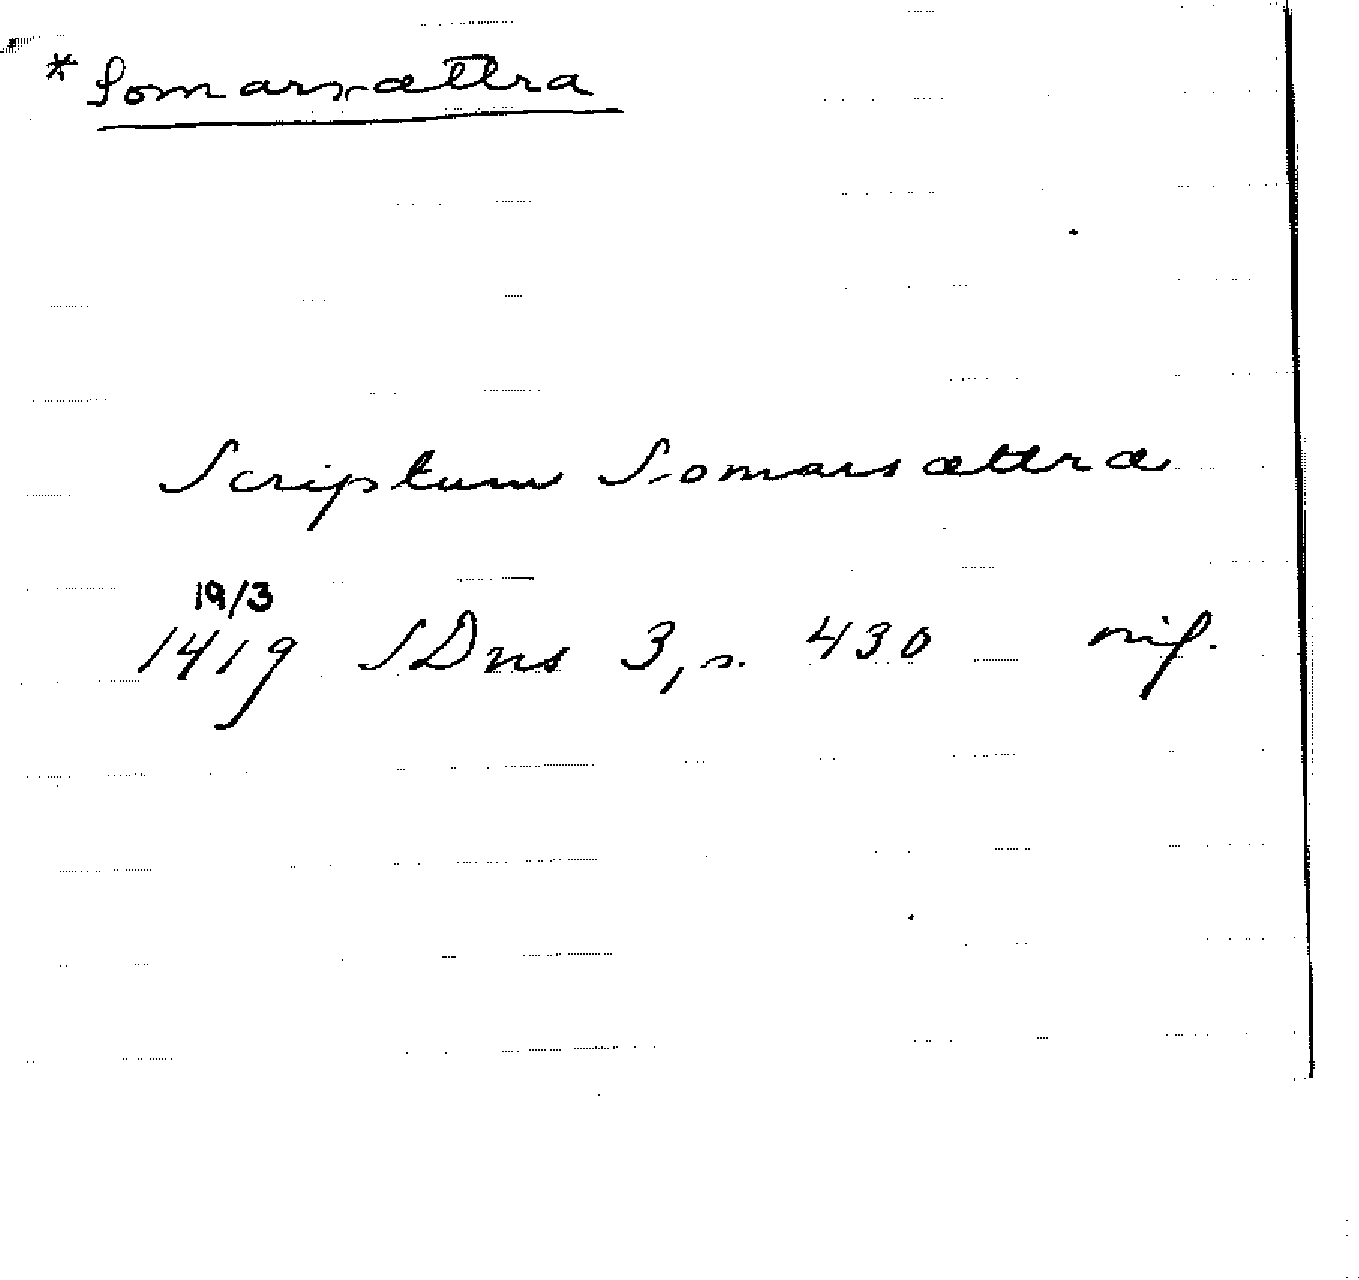 * Somarsættra
Scriptum Somarsættra
19/3
1419 SDns 3, s. 430 nif.